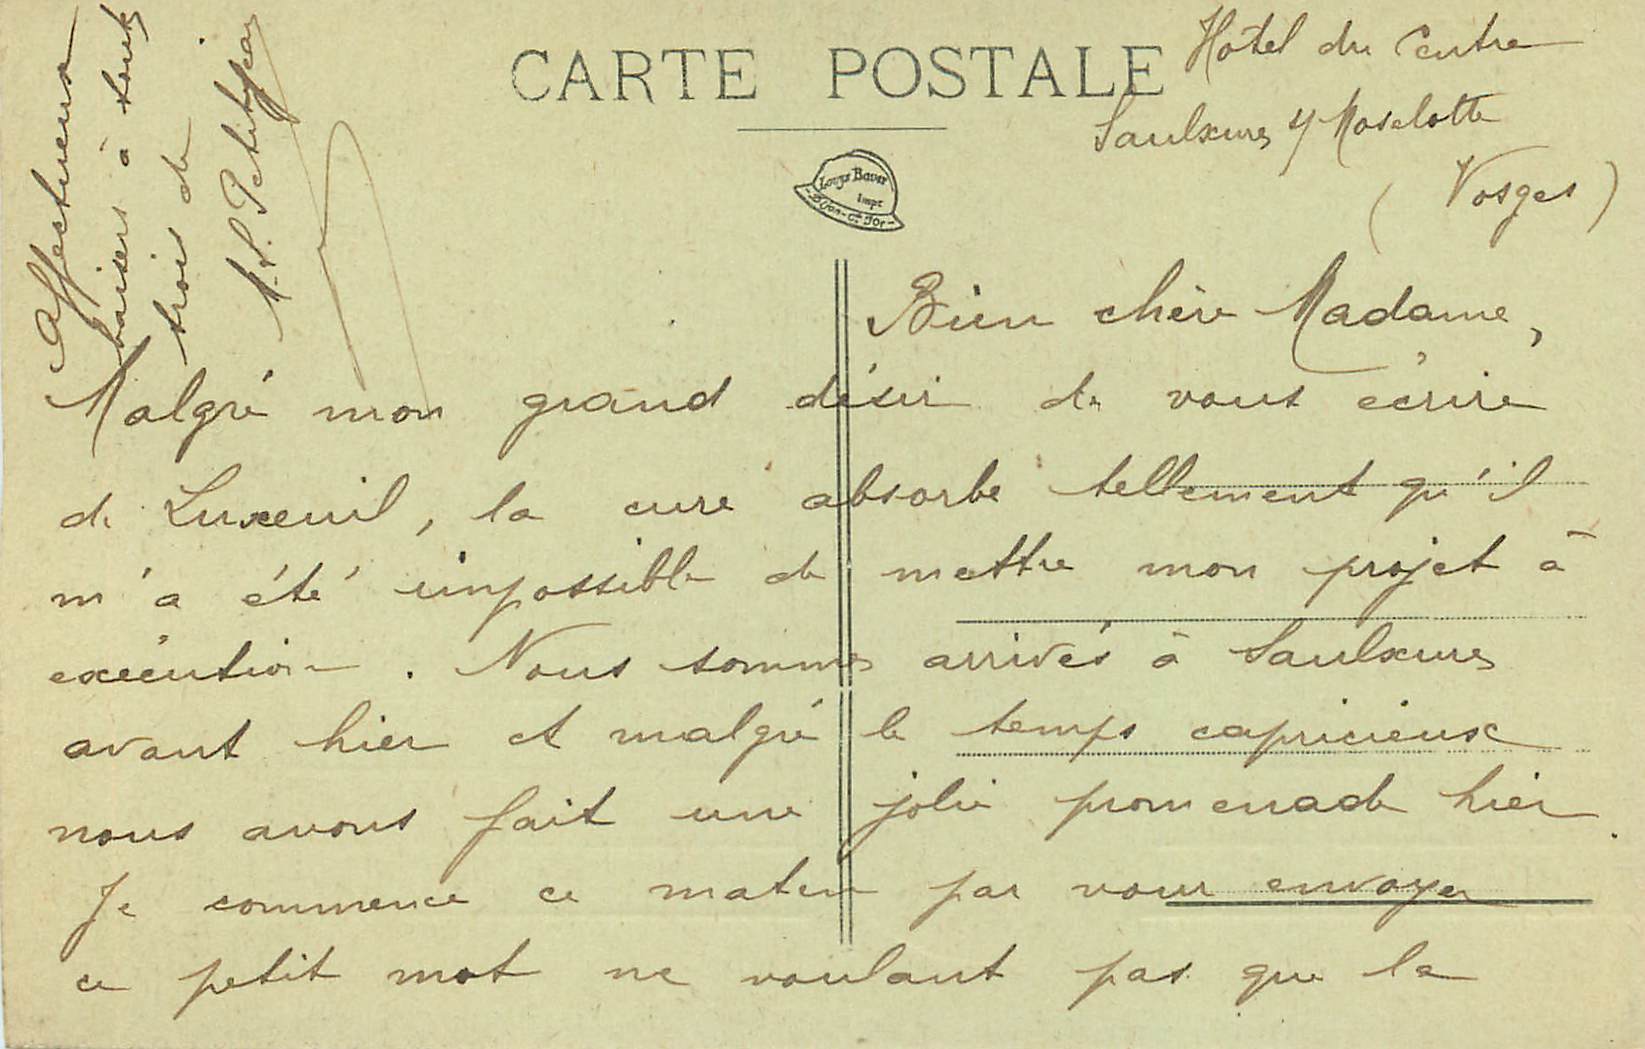 CARTE POSTALE
Hôtel du Centre
Saulxures s/ Moselotte
(Vosges)
Louys Bauer
Impr
Dijon-Cte d'Or
Bien chère Madame,
Malgré mon grand désir de vous écrire
de Luxeuil, la cure absorbe tellement qu'il
m'a été impossible de mettre mon projet à
exécution. Nous sommes arrivés à Saulxures
avant hier et malgré le temps capricieux
nous avons fait une jolie promenade hier.
Je commence ce matin par vous envoyer
ce petit mot ne voulant pas que le
Affectueux
baisers à toutes
trois de
Petitjean